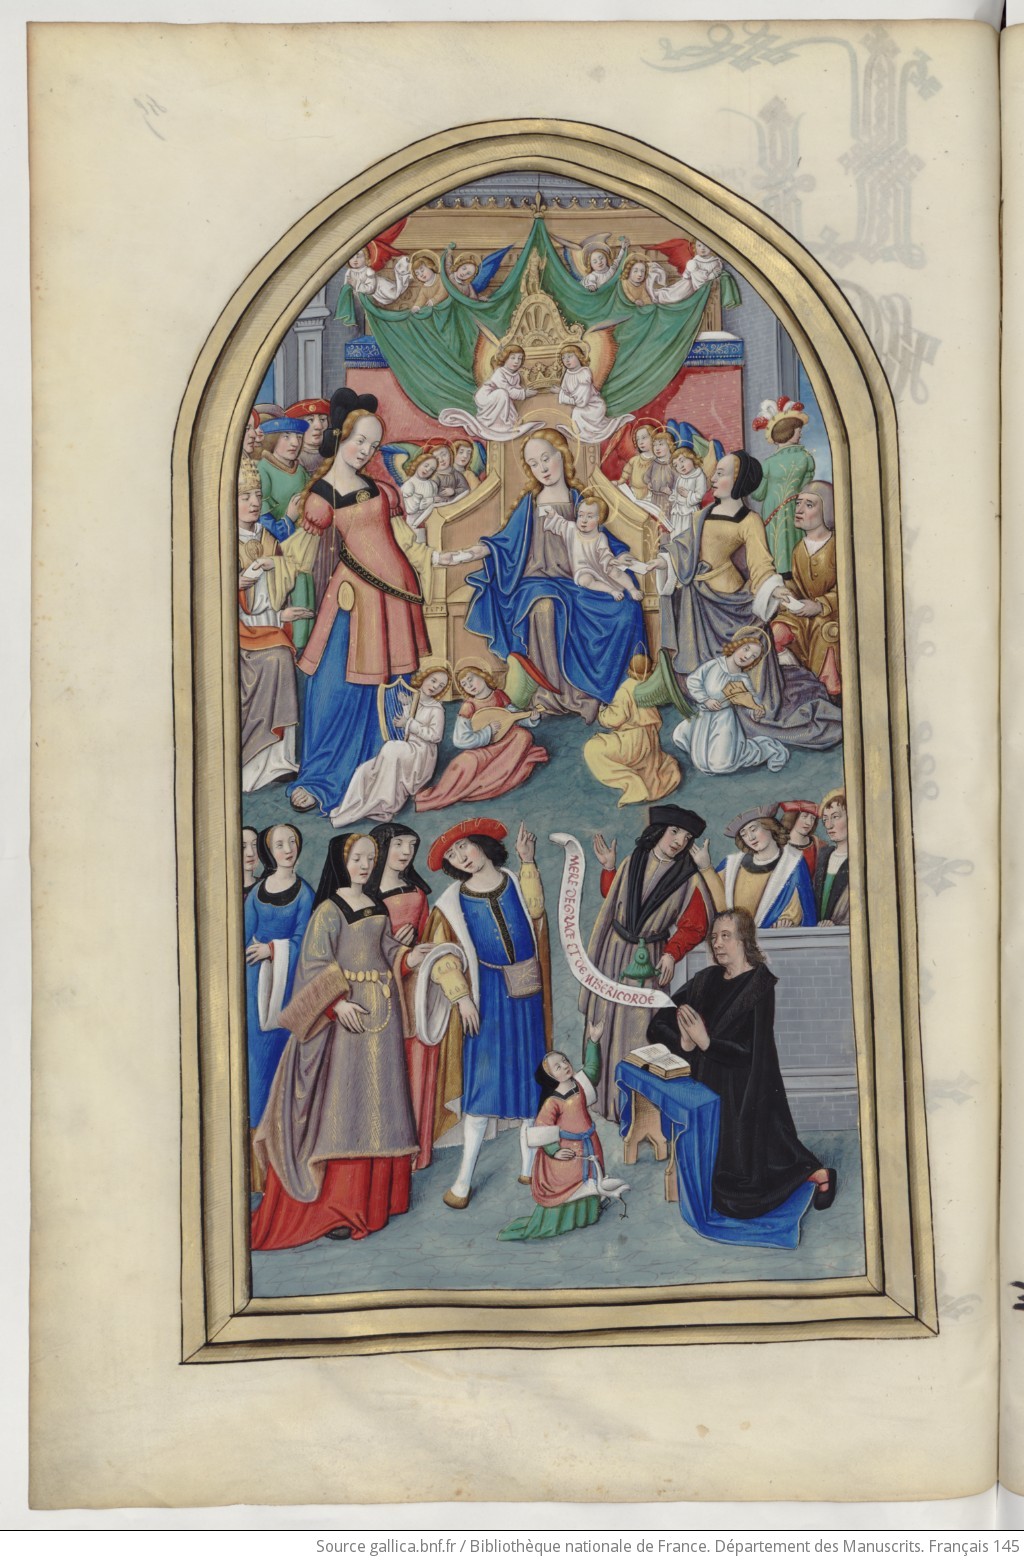 MERE DE GRACE ET DE MISERICORDE
Source gallica.bnf.fr / Bibliothèque nationale de France. Département des Manuscrits. Français 145